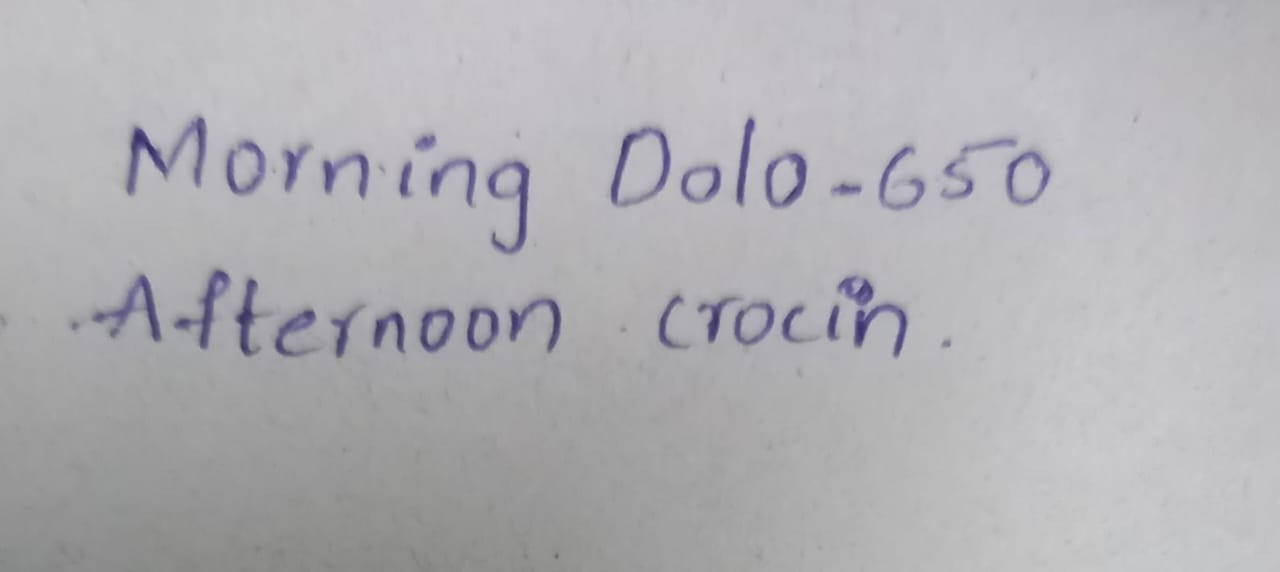 Morning Dolo-650
Afternoon crocin.